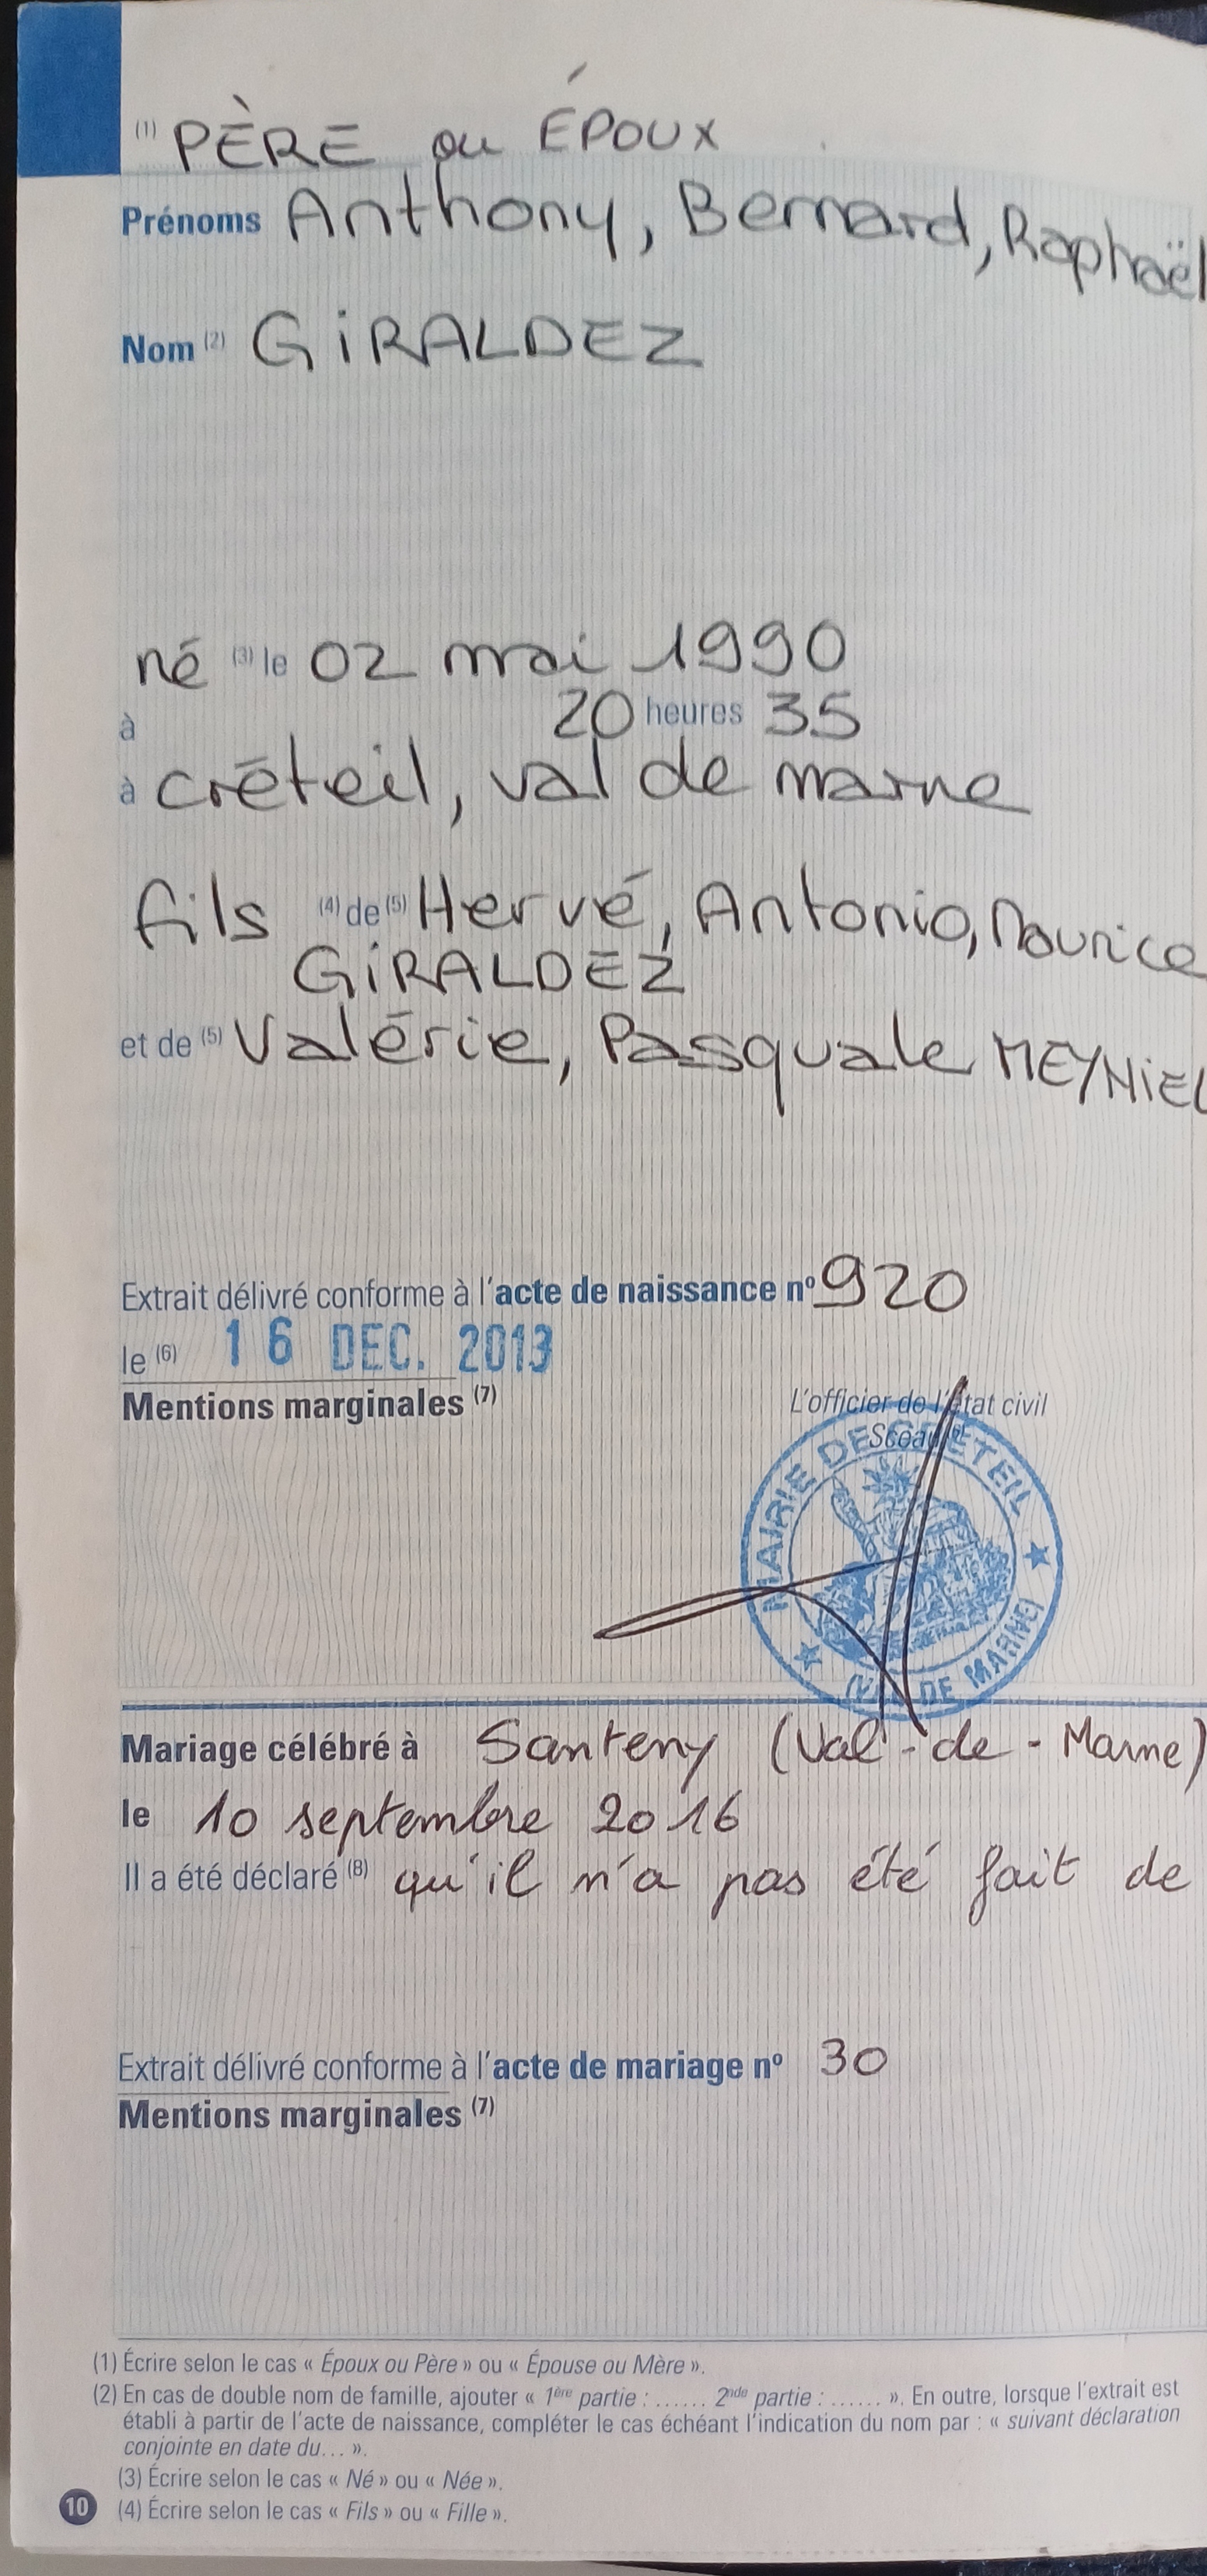 (1) PÈRE ou ÉPOUX
Prénoms Anthony, Bernard, Raphaël
Nom (2) GiRALDEZ
né (3) le 02 mai 1990
à 20 heures 35
à créteil, val de marne
fils (4) de (5) Hervé, Antonio, Maurice
GiRALDEZ
et de (5) Valérie, Pasquale MEYNiEL
Extrait délivré conforme à l'acte de naissance nº 920
le (6) 16 DEC. 2013
Mentions marginales (7)
L'officier de l'état civil
Sceau
MAIRIE DE CRÉTEIL
(VAL DE MARNE)
Mariage célébré à Santeny (Val-de-Marne)
le 10 septembre 2016
Il a été déclaré (8) qu'il n'a pas été fait de
Extrait délivré conforme à l'acte de mariage nº 30
Mentions marginales (7)
(1) Écrire selon le cas « Époux ou Père » ou « Épouse ou Mère ».
(2) En cas de double nom de famille, ajouter « 1ère partie : ...... 2nde partie : ...... ». En outre, lorsque l'extrait est
établi à partir de l'acte de naissance, compléter le cas échéant l'indication du nom par : « suivant déclaration
conjointe en date du... ».
(3) Écrire selon le cas « Né » ou « Née ».
(4) Écrire selon le cas « Fils » ou « Fille ».
10